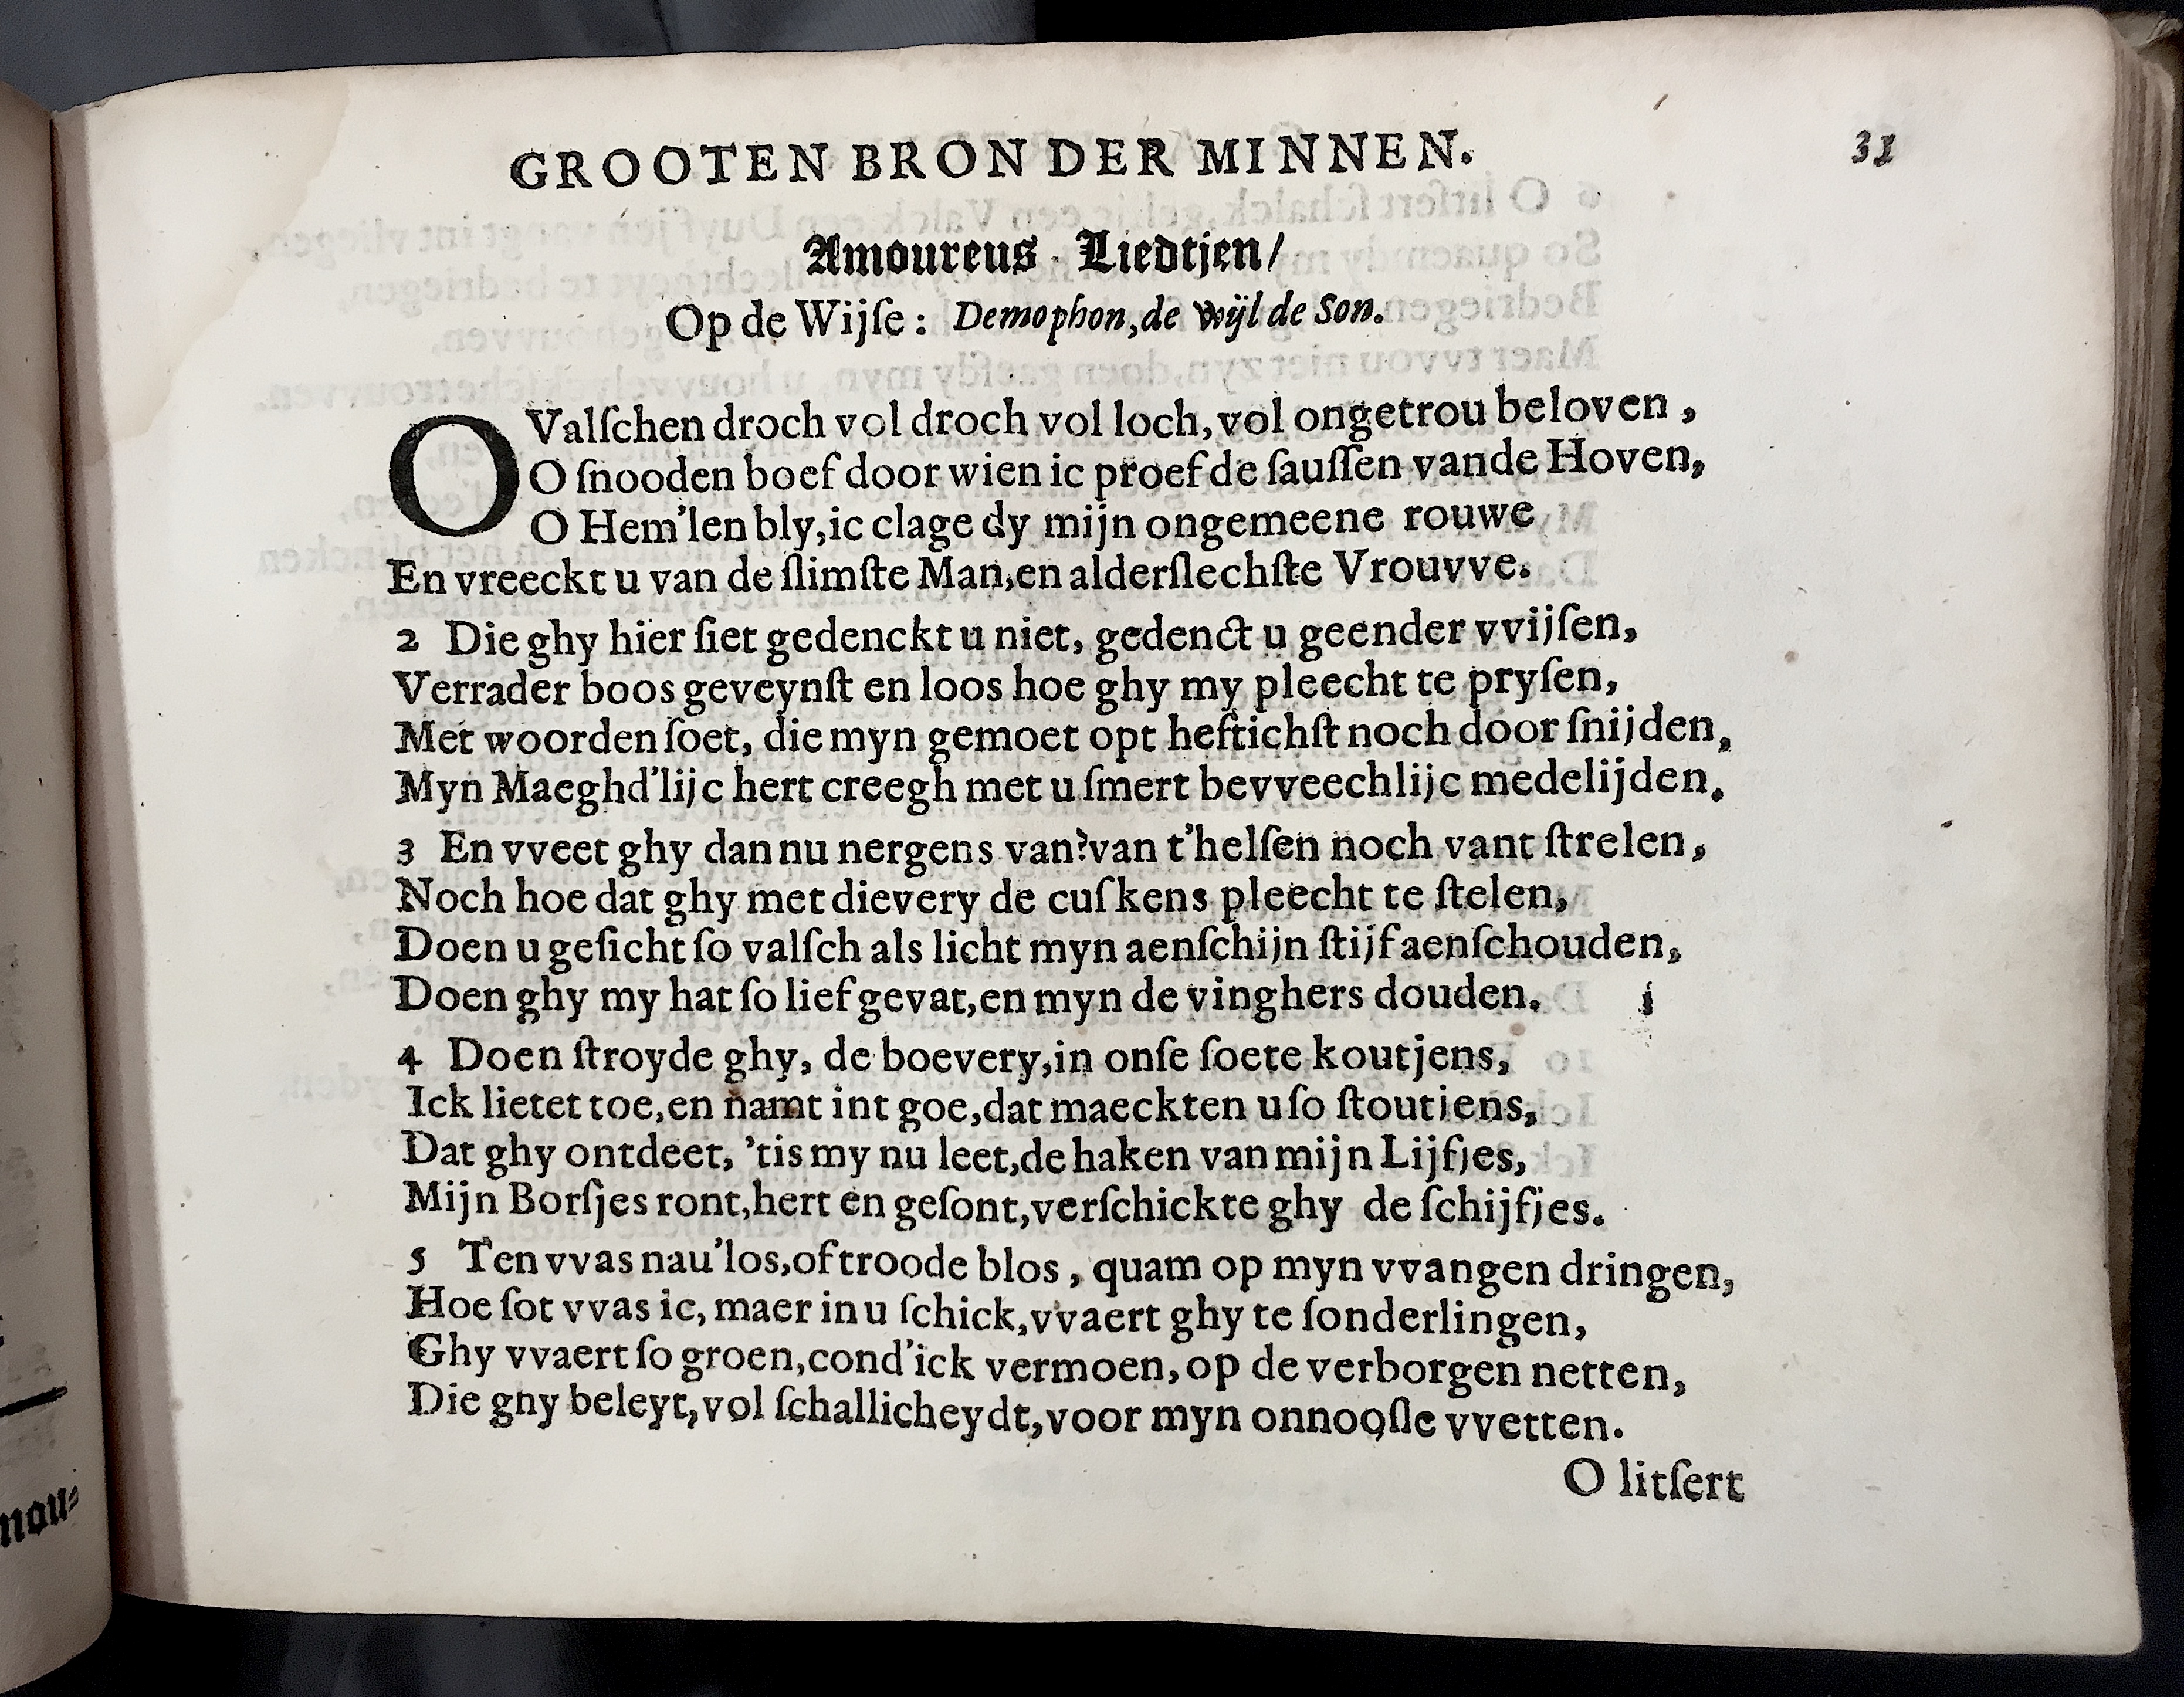 GROOTEN BRON DER MINNEN.
31
Amoureus Liedtjen/
Op de Wijſe: Demophon, de wijl de Son.
O Valſchen droch vol droch vol loch, vol ongetrou beloven,
O ſnooden boef door wien ic proef de ſauſſen vande Hoven,
O Hem'len bly, ic clage dy mijn ongemeene rouwe
En vreeckt u van de ſlimſte Man, en alderſlechſte Vrouvve.
2 Die ghy hier ſiet gedenckt u niet, gedenct u geender vvijſen,
Verrader boos geveynſt en loos hoe ghy my pleecht te pryſen,
Met woorden ſoet, die myn gemoet opt heftichſt noch door ſnijden,
Myn Maeghd'lijc hert creegh met u ſmert bevveechlijc medelijden.
3 En vveet ghy dan nu nergens van? van t'helſen noch vant ſtrelen,
Noch hoe dat ghy met dievery de cuſkens pleecht te ſtelen,
Doen u geſicht ſo valſch als licht myn aenſchijn ſtijf aenſchouden,
Doen ghy my hat ſo lief gevat, en myn de vinghers douden.
4 Doen ſtroyde ghy, de boevery, in onſe ſoete koutjens,
Ick lietet toe, en namt int goe, dat maeckten u ſo ſtoutiens,
Dat ghy ontdeet, 'tis my nu leet, de haken van mijn Lijfjes,
Mijn Borſjes ront, hert en geſont, verſchickte ghy de ſchijfjes.
5 Ten vvas nau'los, of troode blos, quam op myn vvangen dringen,
Hoe ſot vvas ic, maer in u ſchick, vvaert ghy te ſonderlingen,
Ghy vvaert ſo groen, cond'ick vermoen, op de verborgen netten,
Die ghy beleyt, vol ſchallicheydt, voor myn onnooſle vvetten.
O litſert
nau⸗